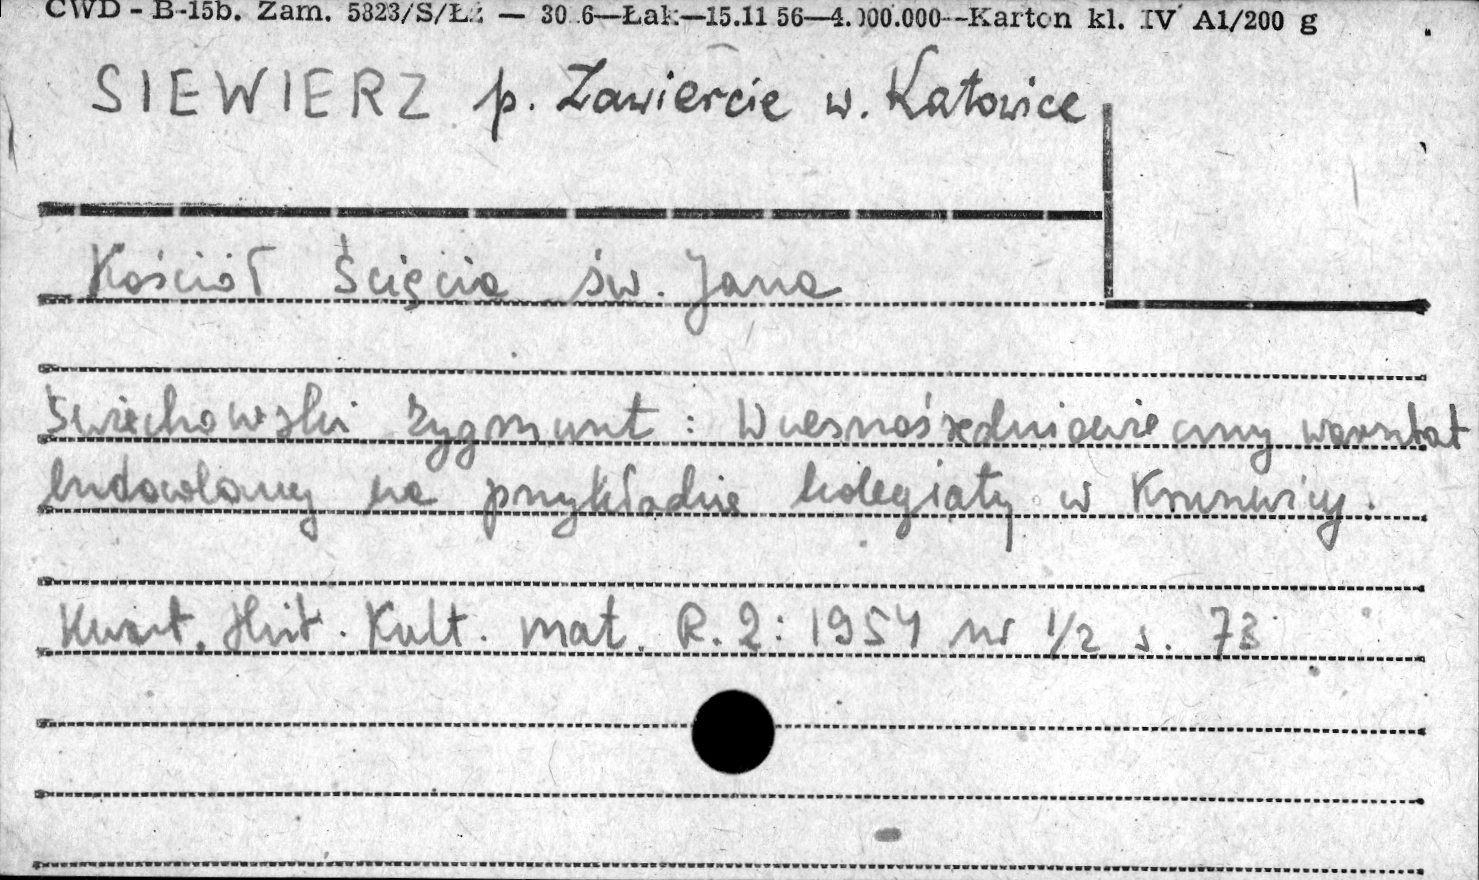 CWD - B-15b. Zam. 5823/S/Łź — 30.6—Łak—15.11 56—4.000.000—Karton kl. IV A1/200 g
SIEWIERZ p. Zawiercie w. Katowice
Kościół Ścięcia św. Jana
Świechowski Zygmunt : Wczesnośredniowieczny warsztat
budowlany na przykładzie kolegiaty w Kruszwicy.
Kwart. Hist. Kult. mat. R. 2: 1954 nr 1/2 s. 73